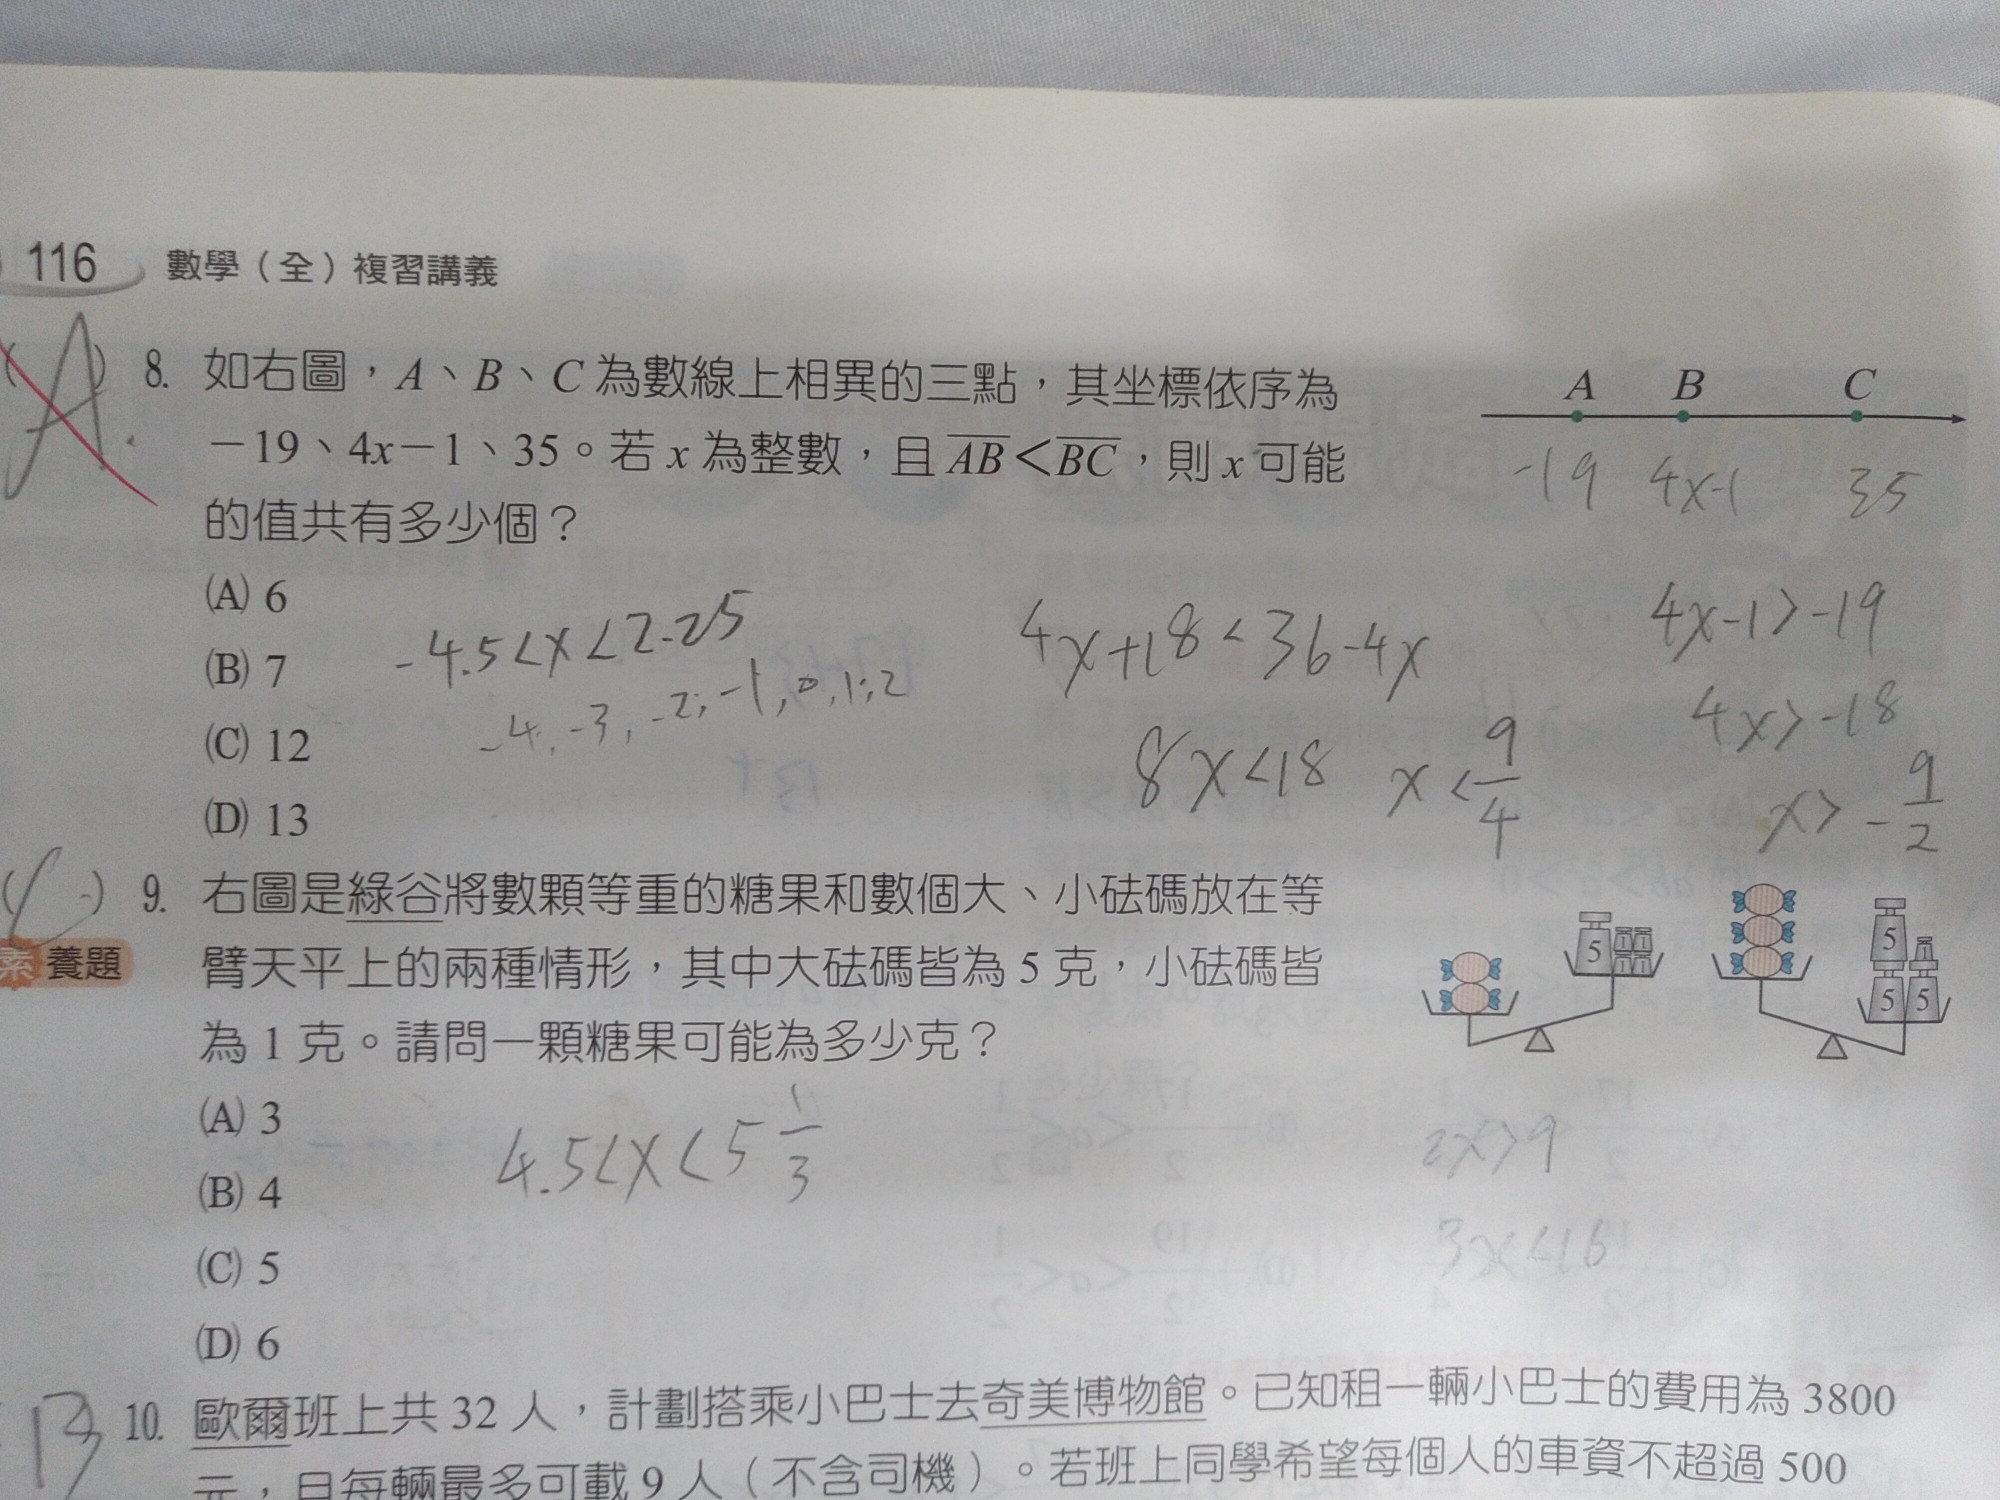 116 數學（全）複習講義
(A) 8. 如右圖，A、B、C 為數線上相異的三點，其坐標依序為
－19、4x－1、35。若 x 為整數，且 AB＜BC，則 x 可能
的值共有多少個？
A B C
-19 4x-1 35
(A) 6
(B) 7
(C) 12
(D) 13
-4.5<x<2.25
-4, -3, -2, -1, 0, 1, 2
4x+18<36-4x
8x<18 x<9/4
4x-1>-19
4x>-18
x>-9/2
( ) 9. 右圖是綠谷將數顆等重的糖果和數個大、小砝碼放在等
素養題 臂天平上的兩種情形，其中大砝碼皆為 5 克，小砝碼皆
為 1 克。請問一顆糖果可能為多少克？
5 1 1 1 1
5 1
5 5
(A) 3
(B) 4
(C) 5
(D) 6
4.5<x<5 1/3
2x>9
3x<16
B 10. 歐爾班上共 32 人，計劃搭乘小巴士去奇美博物館。已知租一輛小巴士的費用為 3800
元，且每輛最多可載 9 人（不含司機）。若班上同學希望每個人的車資不超過 500